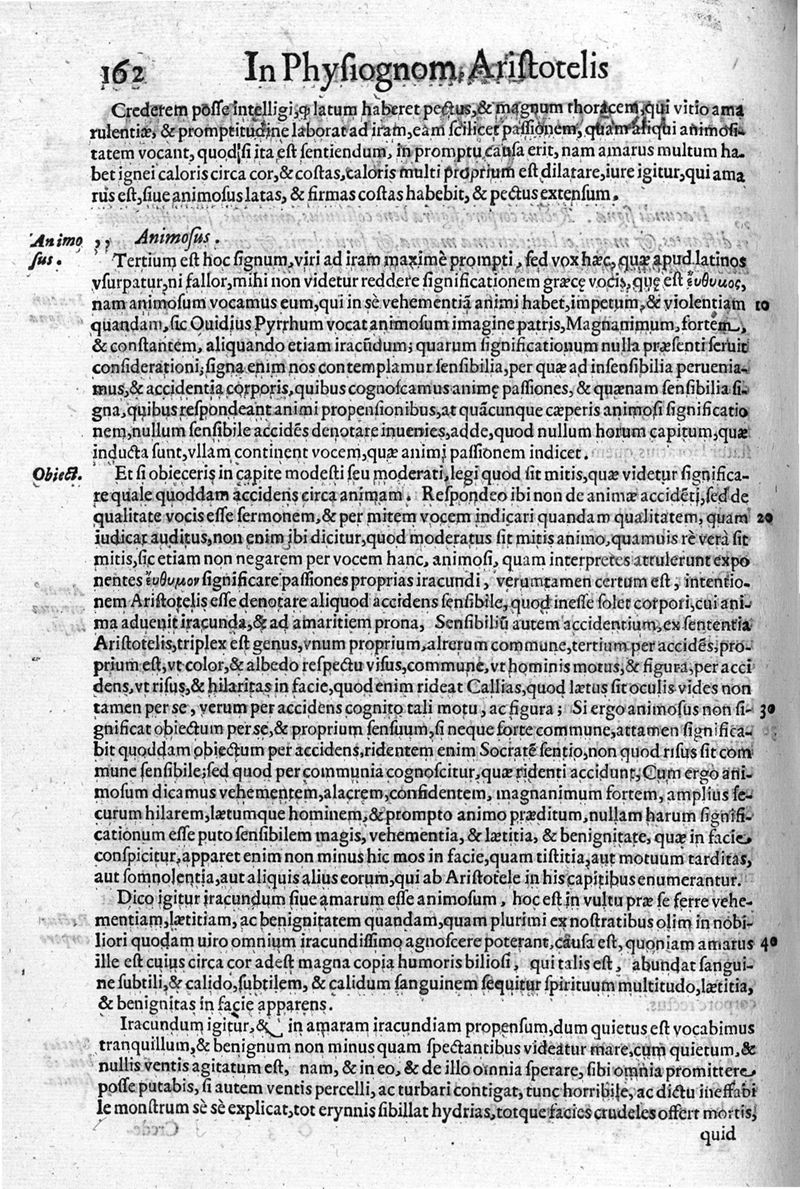 162 In Physiognom, Aristotelis
Crederem posse intelligi, ꝙ latum haberet pectus, & magnum thoracem, qui vitio ama
rulentiæ, & promptitudine laborat ad iram, eam scilicet passionem, quam aliqui animosi-
tatem vocant, quod si ita est sentiendum, in promptu causa erit, nam amarus multum ha-
bet ignei caloris circa cor, & costas, caloris multi proprium est dilatare, iure igitur, qui ama
rus est, siue animosus latas, & firmas costas habebit, & pectus extensum.
Animo ,, Animosus.
sus. Tertium est hoc signum, viri ad iram maximè prompti, sed vox hæc, quæ apud latinos
vsurpatur, ni fallor, mihi non videtur reddere significationem græcę vocis, quę est ἔυθυμος,
nam animosum vocamus eum, qui in sè vehementiã animi habet, impetum, & violentiam 10
quandam, sic Ouidius Pyrrhum vocat animosum imagine patris, Magnanimum, fortem,
& constantem, aliquando etiam iracũdum; quarum significationum nulla præsenti seruit
considerationi; signa enim nos contemplamur sensibilia, per quæ ad insensibilia peruenia-
mus, & accidentia corporis, quibus cognoscamus animę passiones, & quænam sensibilia si-
gna, quibus respondeant animi propensionibus, at quãcunque cæperis animosi significatio
nem, nullum sensibile accidẽs denotare inuenies, adde, quod nullum horum capitum, quæ
inducta sunt, vllam continent vocem, quæ animi passionem indicet.
Obiect. Et si obieceris in capite modesti seu moderati, legi quod sit mitis, quæ videtur significa-
re quale quoddam accidens circa animam. Respondeo ibi non de animæ accidẽti, sed de
qualitate vocis esse sermonem, & per mitem vocem indicari quandam qualitatem, quam 20
iudicat auditus, non enim ibi dicitur, quod moderatus sit mitis animo, quamuis rè verà sit
mitis, sic etiam non negarem per vocem hanc, animosi, quam interpretes attulerunt expo
nentes ἔυθυμον significare passiones proprias iracundi, verumtamen certum est, intentio-
nem Aristotelis esse denotare aliquod accidens sensibile, quod inesse solet corpori, cui ani-
ma aduenit iracunda, & ad amaritiem prona, Sensibiliũ autem accidentium, ex sententia
Aristotelis, triplex est genus, vnum proprium, alterum commune, tertium per accidẽs, pro-
prium est, vt color, & albedo respectu visus, commune, vt hominis motus, & figura, per acci
dens, vt risus, & hilaritas in facie, quod enim rideat Callias, quod lætus sit oculis vides non
tamen per se, verum per accidens cognito tali motu, ac figura; Si ergo animosus non si- 30
gnificat obiectum per se, & proprium sensuum, si neque forte commune, attamen significa-
bit quoddam obiectum per accidens, ridentem enim Socratẽ sentio, non quod risus sit com
mune sensibile; sed quod per communia cognoscitur, quæ ridenti accidunt, Cum ergo ani-
mosum dicamus vehementem, alacrem, confidentem, magnanimum fortem, amplius se-
curum hilarem, lætumque hominem, & prompto animo præditum, nullam harum signifi-
cationum esse puto sensibilem magis, vehementia, & lætitia, & benignitate, quæ in facie
conspicitur, apparet enim non minus hic mos in facie, quam tistitia, aut motuum tarditas,
aut somnolentia, aut aliquis alius eorum, qui ab Aristotele in his capitibus enumerantur.
Dico igitur iracundum siue amarum esse animosum, hoc est in vultu præ se ferre vehe-
mentiam, lætitiam, ac benignitatem quandam, quam plurimi ex nostratibus olim in nobi-
liori quodam uiro omnium iracundissimo agnoscere poterant, causa est, quoniam amarus 40
ille est cuius circa cor adest magna copia humoris biliosi, qui talis est, abundat sangui-
ne subtili, & calido, subtilem, & calidum sanguinem sequitur spirituum multitudo, lætitia,
& benignitas in facie apparens.
Iracundum igitur, & in amaram iracundiam propensum, dum quietus est vocabimus
tranquillum, & benignum non minus quam spectantibus videatur mare, cum quietum, &
nullis ventis agitatum est, nam, & in eo, & de illo omnia sperare, sibi omnia promittere
posse putabis, si autem ventis percelli, ac turbari contigat, tunc horribile, ac dictu ineffabi
le monstrum sè sè explicat, tot erynnis sibillat hydrias, totque facies crudeles offert mortis,
quid